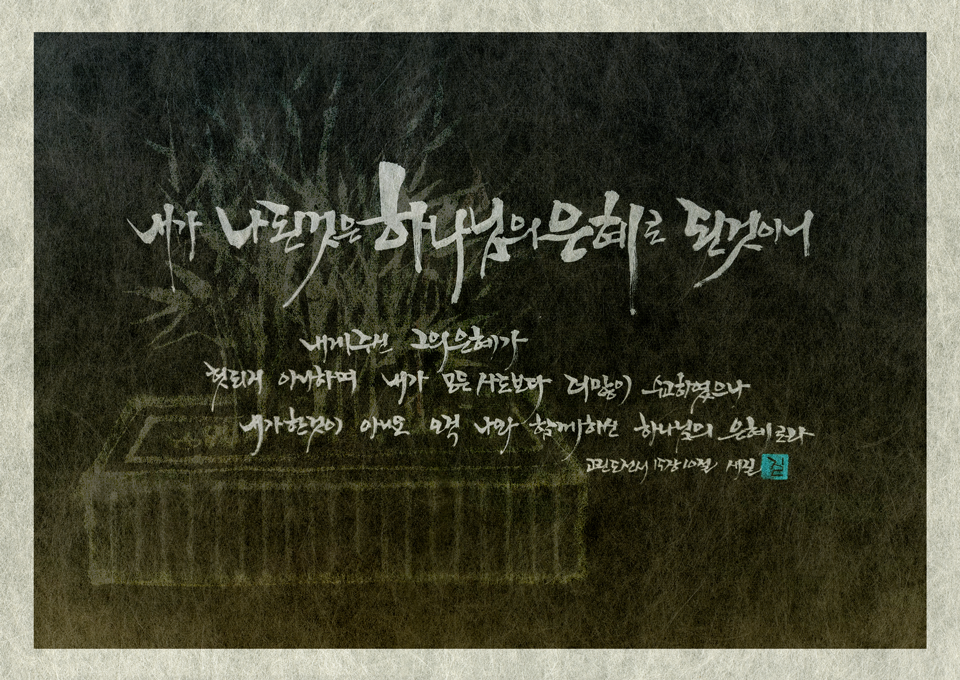 내가 나된것은 하나님의 은혜로 된것이니
내게주신 그의은혜가
헛되지 아니하며 내가 모든 사도보다 더많이 수고하였으나
내가한것이 아니요 오직 나와 함께하신 하나님의 은혜로라
고린도전서 15장 10절 세길
김